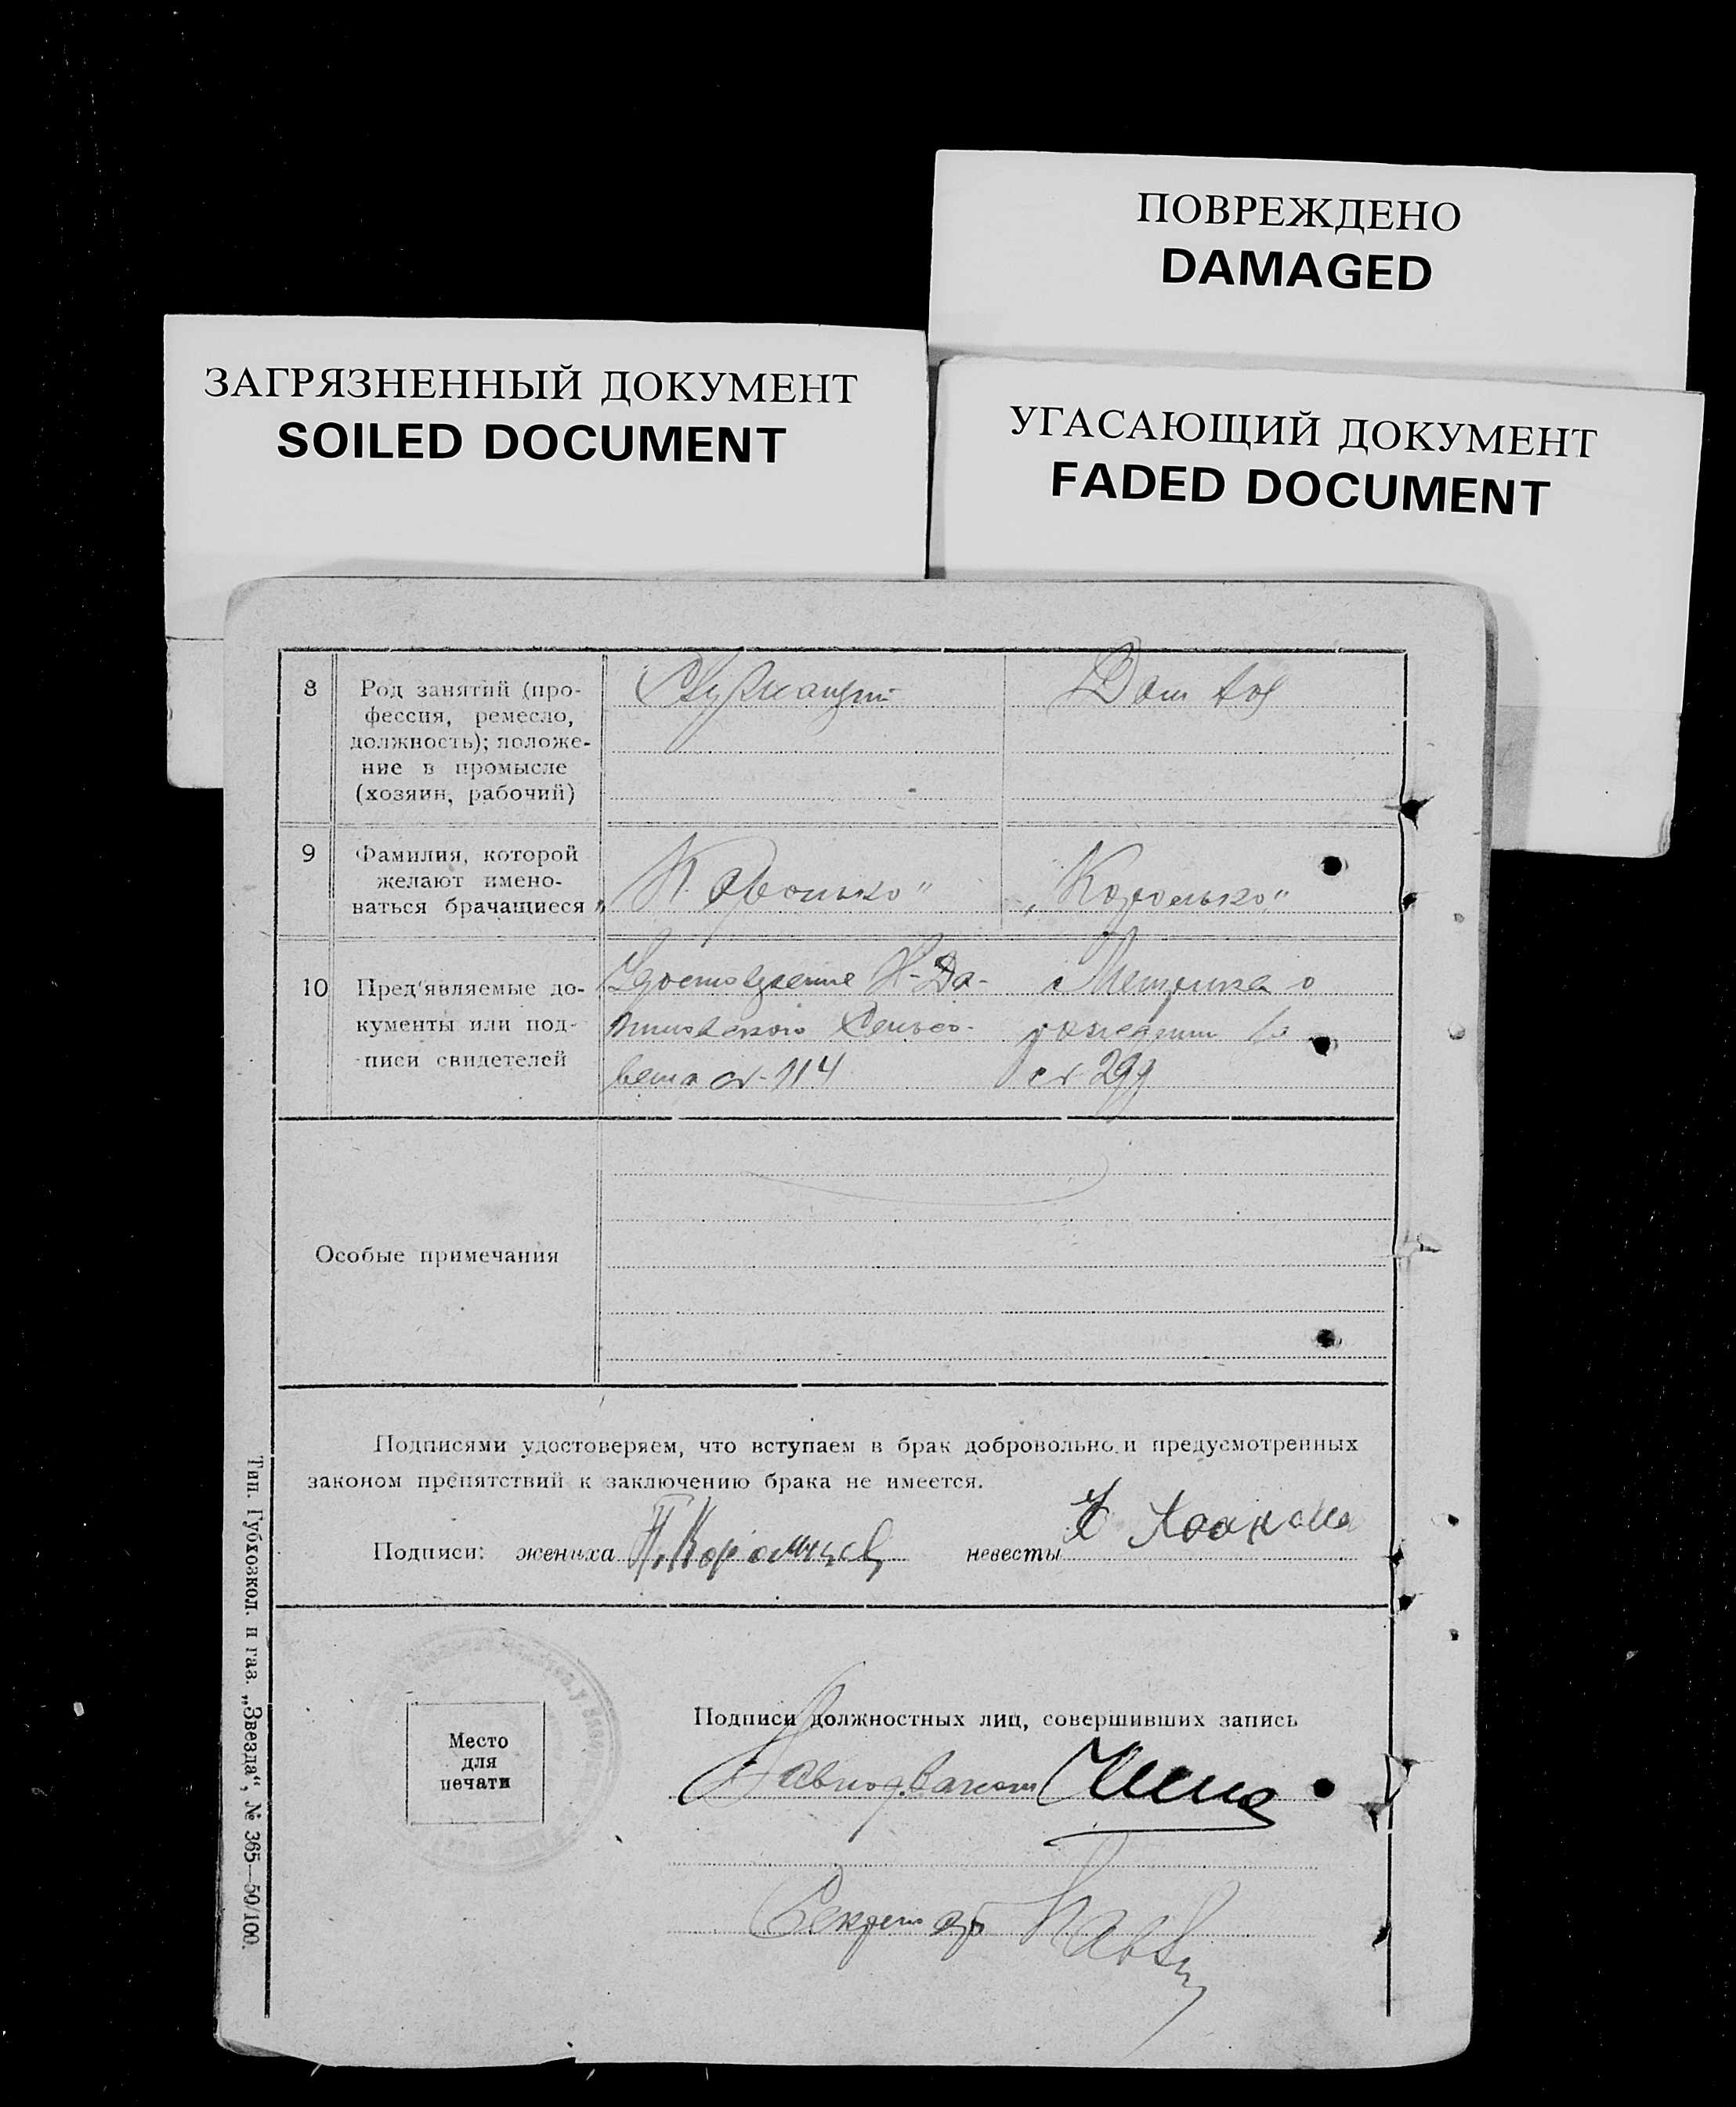 ПОВРЕЖДЕНО
DAMAGED
ЗАГРЯЗНЕННЫЙ ДОКУМЕНТ
SOILED DOCUMENT
УГАСАЮЩИЙ ДОКУМЕНТ
FADED DOCUMENT
8 Род занятий (про-
фессия, ремесло,
должность); положе-
ние в промысле
(хозяин, рабочий)
Служащий
Дом хоз
9 Фамилия, которой
желают имено-
ваться брачащиеся
„Королько“
„Королько“
10 Пред'являемые до-
кументы или под-
писи свидетелей
Удостоверение Н-Да-
Сельсо-
вета 114
Метрика о
рождении
29
Особые примечания
Подписями удостоверяем, что вступаем в брак добровольно и предусмотренных
законом препятствий к заключению брака не имеется.
Подписи: жениха
невесты
Место
для
печати
Подписи должностных лиц, совершивших запись
Завподзагсом
Секретарь
Тип. Губкозкол. и газ. „Звезда“, № 365—50/100.